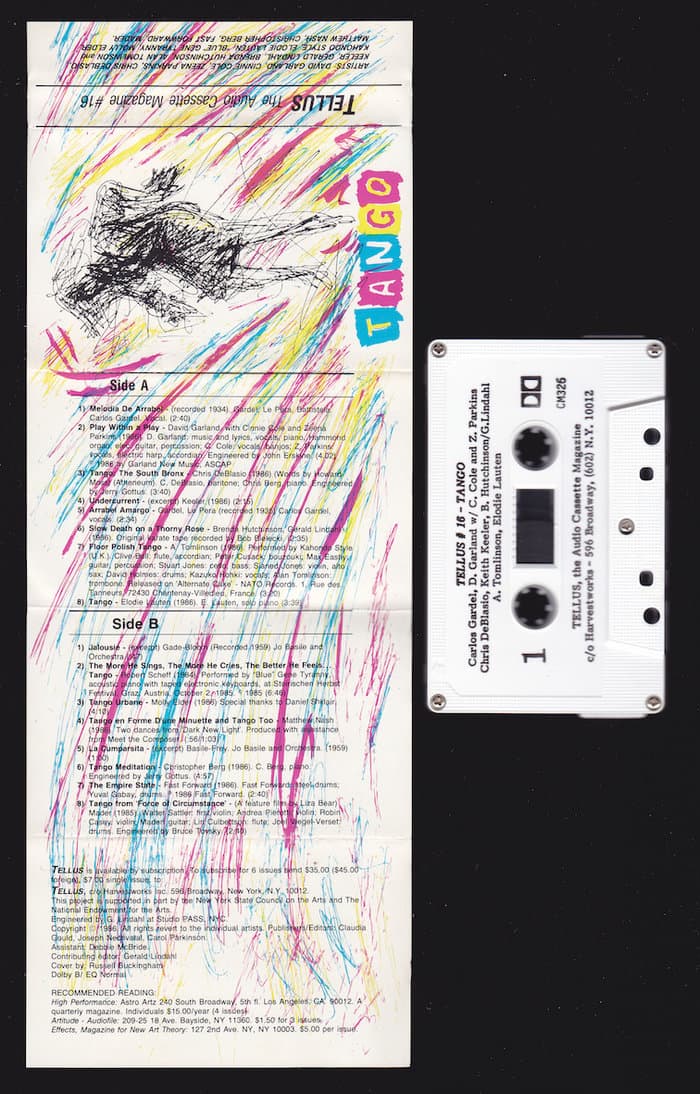 ARTISTS: DAVID GARLAND, CINNIE COLE, ZEENA PARKINS, CHRIS DEBLASIO
KEELER, GERALD LINDAHL, BRENDA HUTCHINSON, ALAN TOMLINSON and
KAHONDO STYLE, ELODIE LAUTEN, "BLUE" GENE TYRANNY, MOLLY ELDER,
MATTHEW NASH, CHRISTOPHER BERG, FAST FORWARD, MADER.
TELLUS The Audio Cassette Magazine #16
TANGO
Side A
1) Melodia De Arrabel - (recorded 1934) Gardel, Le Pera, Battistela,
Carlos Gardel, Vocal. (2:40)
2) Play Within a Play - David Garland with Cinnie Cole and Zeena
Parkins. (1986) D. Garland: music and lyrics, vocals, piano, Hammond
organ, elec. guitar, percussion; C. Cole: vocals, banjos; Z. Parkins:
vocals, electric harp, accordian; Engineered by John Erskine. (4:02)
1986 Garland New Music, ASCAP
3) Tango: The South Bronx - Chris DeBlasio (1986) (Words by Howard
Moss) (Atheneum). C. DeBlasio, baritone; Chris Berg, piano. Engineered
by Jerry Gottus. (3:40)
4) Undercurrent - (excerpt) Keeler (1986) (2:15)
5) Arrabel Amargo - Gardel, Le Pera (recorded 1935) Carlos Gardel,
vocals. (2:34)
6) Slow Death on a Thorny Rose - Brenda Hutchinson, Gerald Lindahl
(1986). Original quarate tape recorded by Bob Bielecki. (2:35)
7) Floor Polish Tango - A. Tomlinson (1986). Performed by Kahondo Style
(U.K.). Clive Bell: flute, accordian; Peter Cusack: bouzouki; Max Eastly:
guitar, percussion; Stuart Jones: cello, bass; Sianed Jones: violin, alto
sax; David Holmes: drums; Kazuko Hohki: vocals; Alan Tomlinson:
trombone. Released on 'Alternate Cake' - NATO Records. 1, Rue des
Tanneurs, 72430 Chantenay-Villedieu, France. (3:20)
8) Tango - Elodie Lauten (1986). E. Lauten, solo piano (3:39)
Side B
1) Jalousie - (excerpt) Gade-Bloom (Recorded 1959) Jo Basile and
Orchestra.
2) The More He Sings, The More He Cries, The Better He Feels...
Tango - Robert Scheff (1984). Performed by "Blue" Gene Tyranny,
acoustic piano with taped electronic keyboards, at Steirischen Herbst
Festival, Graz, Austria, October 2, 1985. 1985 (6:46)
3) Tango Urbane - Molly Elder (1986) Special thanks to Daniel Sklair.
(4:10)
4) Tango en Forme Dram Minuette and Tango Too - Matthew Nash
(1986). Two dances from 'Dark New Light'. Produced with assistance
from Meet the Composer. (:56/1:03)
5) La Jumparsita - (excerpt) Basile-Frey. Jo Basile and Orchestra. (1959)
6) Tango Meditation - Christopher Berg (1986). C. Berg, piano.
Engineered by Jerry Gottus. (4:57)
7) The Empire State - Fast Forward (1986). Fast Forward, steel drums;
Yuval Gabay, drums. 1986 Fast Forward. (2:40)
8) Tango from 'Force of Circumstance' - (A feature film by Liza Bear)
Mader (1985). Walter Sattler: fms, violin; Andrea Pierotti: violin; Robin
Casey: violin; Mader: guitar; Lin Culbertson: flute; Joel Siegel-Verset:
drums. Engineered by Bruce Tovsky. (2:40)
TELLUS is available by subscription. To subscribe for 6 issues send $35.00 ($45.00
foreign), $7.00 single issue, to:
TELLUS, c/o Harvestworks Inc. 596 Broadway, New York, N.Y. 10012.
This project is supported in part by the New York State Council on the Arts and The
National Endowment for the Arts.
Engineered by G. Lindahl at Studio PASS, NYC.
Copyright © 1986. All rights revert to the individual artists. Publishers/Editors: Claudia
Gould, Joseph Nechvatal, Carol Parkinson.
Assistant: Debbie McBride.
Contributing editor: Gerald Lindahl
Cover by: Russell Buckingham
Dolby B/ EQ Normal
RECOMMENDED READING:
High Performance: Astro Artz 240 South Broadway, 5th fl. Los Angeles, CA. 90012. A
quarterly magazine. Individuals $15.00/year (4 issues).
Artitude - Audiofile: 209-25 18 Ave. Bayside, NY 11360. $1.50 for 3 issues.
Effects, Magazine for New Art Theory: 127 2nd Ave. NY, NY 10003. $5.00 per issue.
TELLUS # 16 - TANGO
Carlos Gardel, D. Garland w/ C. Cole and Z. Parkins
Chris DeBlasio, Keith Keeler, B. Hutchinson/G.Lindahl
A. Tomlinson, Elodie Lauten
1
CM326
TELLUS, the Audio Cassette Magazine
c/o Harvestworks - 596 Broadway, (602) N.Y. 10012